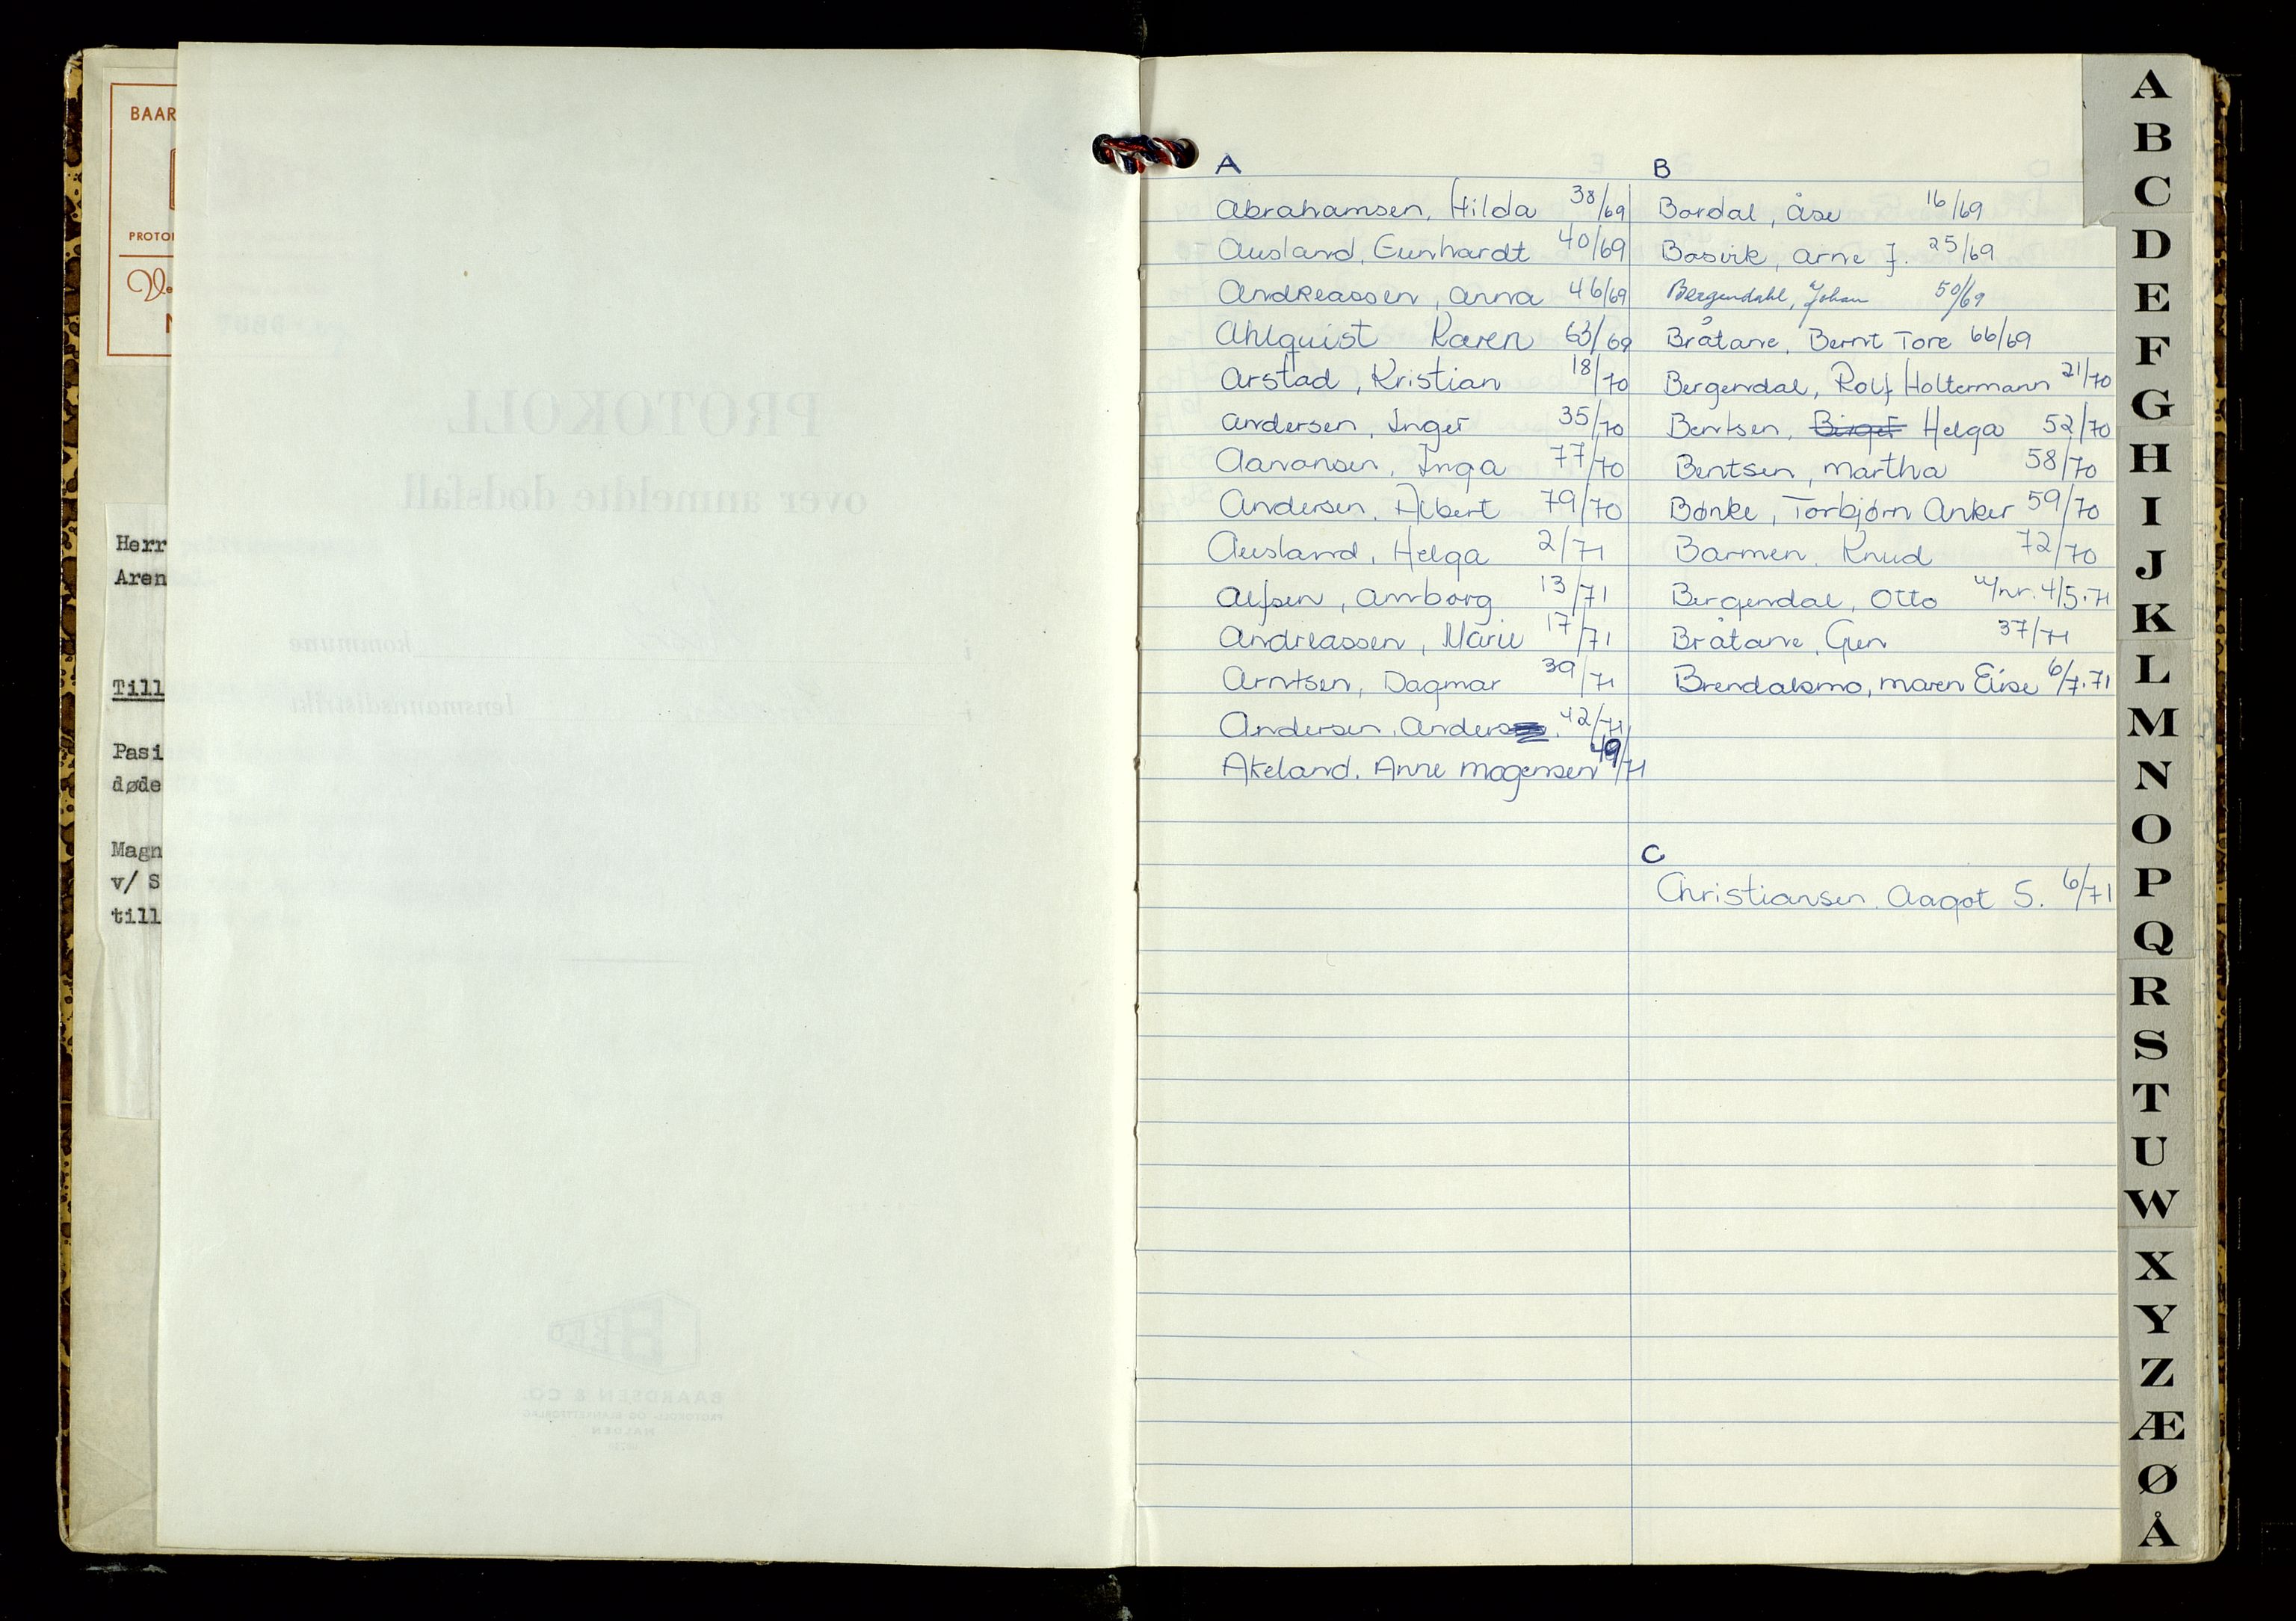 BAAR
PROTO
Herr
Aren
Till
Pasi
døde
Magn
v/ S
till
PROTOKOLL
over anmeldte dødsfall
i kommune
i lensmannsdistrikt
BAARDSEN & CO.
PROTOKOLL- OG BLANKETTFORLAG
HALDEN
A
Abrahamsen, Hilda 38/69
Ausland, Gunhardt 40/69
Andreassen, Anna 46/69
Ahlquist Karen 63/69
Arstad, Kristian 18/70
Andersen, Inger 35/70
Aavansen, Inga 77/70
Andersen, Albert 79/70
Ausland, Helga 2/71
Alfsen, Annborg 13/71
Andreassen, Marie 17/71
Arntsen, Dagmar 39/71
Andersen, Anders 42/71
Akeland. Anne Mogensen 49/71
B
Bordal, Åse 16/69
Bosvik, Arne J. 25/69
Bergendahl, Johan 50/69
Bråtane, Bernt Tore 66/69
Bergendal, Rolf Holtermann 21/70
Bentsen, Birger Helga 52/70
Bentsen, Martha 58/70
Bønke, Torbjørn Anker 59/70
Barmen, Knud 72/70
Bergendal, Otto u/nr. 4/5.71
Bråtane, Gun 37/71
Brendalsmo, Maren Elise 6/7.71
C
Christiansen, Aagot S. 6/71
A
B
C
D
E
F
G
H
I
J
K
L
M
N
O
P
Q
R
S
T
U
W
X
Y
Z
Æ
Ø
Å